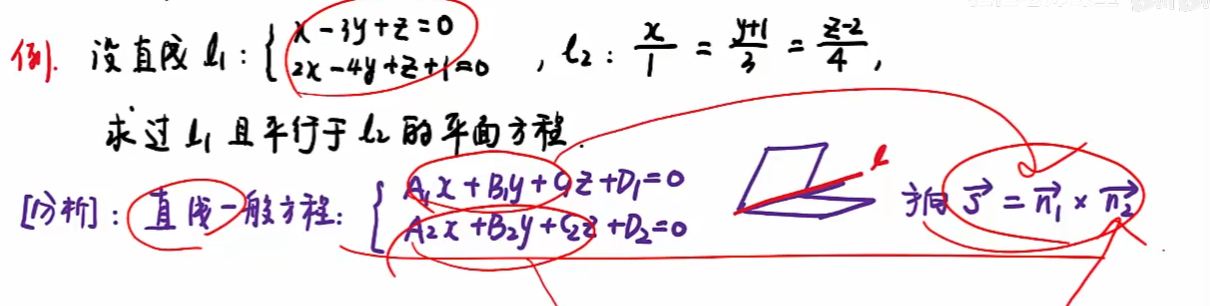 例. 设直线 l₁: { x-3y+z=0 2x-4y+z+1=0 , l₂: x/1 = y+1/3 = z-2/4 ,
求过 l₁ 且平行于 l₂ 的平面方程.
[分析]: 直线一般方程: { A₁x+B₁y+C₁z+D₁=0 A₂x+B₂y+C₂z+D₂=0 l 方向 s⃗ = n₁⃗ × n₂⃗